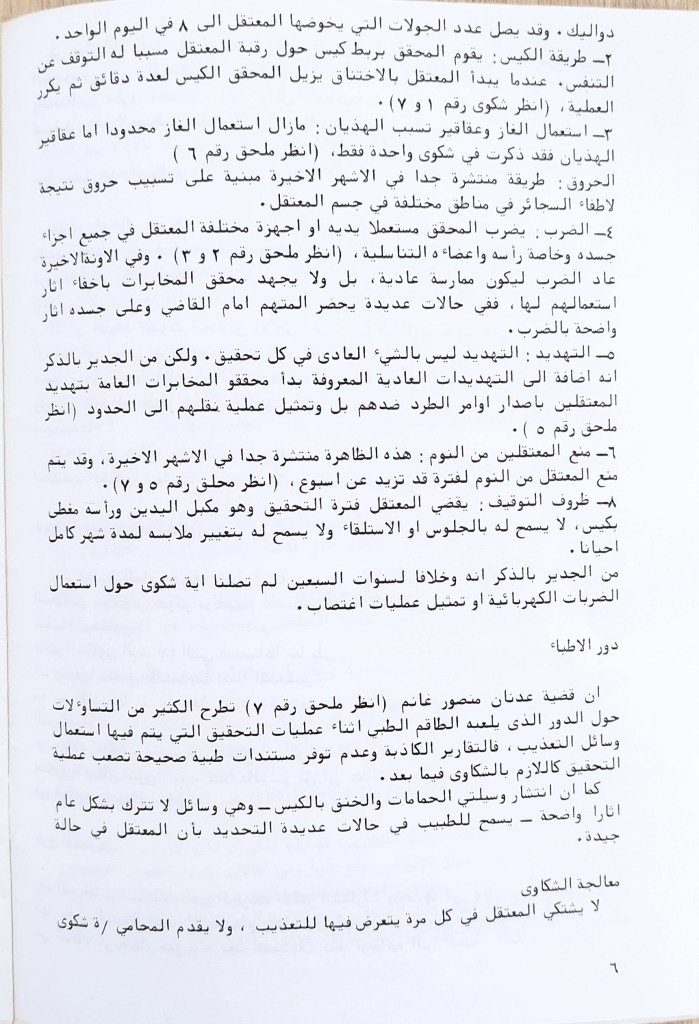 دواليك . وقد يصل عدد الجولات التي يخوضها المعتقل الى ٨ في اليوم الواحد .
٢ـ طريقة الكيس : يقوم المحقق بربط كيس حول رقبة المعتقل مسببا له التوقف عن
التنفس . عندما يبدأ المعتقل بالاختناق يزيل المحقق الكيس لعدة دقائق ثم يكرر
العملية ، (انظر شكوى رقم ١ و ٧) .
٣ـ استعمال الغاز وعقاقير تسبب الهذيان : مازال استعمال الغاز محدودا اما عقاقير
الهذيان فقد ذكرت في شكوى واحدة فقط ، (انظر ملحق رقم ٦ )
الحروق : طريقة منتشرة جدا في الاشهر الاخيرة مبنية على تسبيب حروق نتيجة
لاطفاء السجائر في مناطق مختلفة في جسم المعتقل .
٤ـ الضرب : يضرب المحقق مستعملا يديه او اجهزة مختلفة المعتقل في جميع اجزاء
جسده وخاصة رأسه واعضاء ه التناسلية ، (انظر ملحق رقم ٢ و ٣) . وفي الاونة الاخيرة
عاد الضرب ليكون ممارسة عادية ، بل ولا يجهد محقق المخابرات باخفاء اثار
استعمالهم لها ، ففي حالات عديدة يحضر المتهم امام القاضي وعلى جسده اثار
واضحة بالضرب .
٥ـ التهديد : التهديد ليس بالشيء العادى في كل تحقيق . ولكن من الجدير بالذكر
انه اضافة الى التهديدات العادية المعروفة بدأ محققو المخابرات العامة بتهديد
المعتقلين باصدار اوامر الطرد ضدهم بل وتمثيل عملية نقلهم الى الحدود (انظر
ملحق رقم ٥ ) .
٦ـ منع المعتقلين من النوم : هذه الظاهرة منتشرة جدا في الاشهر الاخيرة ، وقد يتم
منع المعتقل من النوم لفترة قد تزيد عن اسبوع ، (انظر محلق رقم ٥ و ٧) .
٨ـ ظروف التوقيف : يقضي المعتقل فترة التحقيق وهو مكبل اليدين ورأسه مغطى
بكيس ، لا يسمح له بالجلوس او الاستلقاء ولا يسمح له بتغيير ملابسه لمدة شهر كامل
احيانا .
من الجدير بالذكر انه وخلافا لسنوات السبعين لم تصلنا اية شكوى حول استعمال
الضربات الكهربائية او تمثيل عمليات اغتصاب .
دور الاطباء
ان قضية عدنان منصور غانم (انظر ملحق رقم ٧) تطرح الكثير من التساؤلات
حول الدور الذى يلعبه الطاقم الطبي اثناء عمليات التحقيق التي يتم فيها استعمال
وسائل التعذيب ، فالتقارير الكاذبة وعدم توفر مستندات طبية صحيحة تصعب عملية
التحقيق كاللازم بالشكاوى فيما بعد .
كما ان انتشار وسيلتي الحمامات والخنق بالكيس ـ وهي وسائل لا تترك بشكل عام
اثارا واضحة ـ يسمح للطبيب في حالات عديدة التحديد بأن المعتقل في حالة
جيدة .
معالجة الشكاوى
لا يشتكي المعتقل في كل مرة يتعرض فيها للتعذيب ، ولا يقدم المحامي /ة شكوى
٦